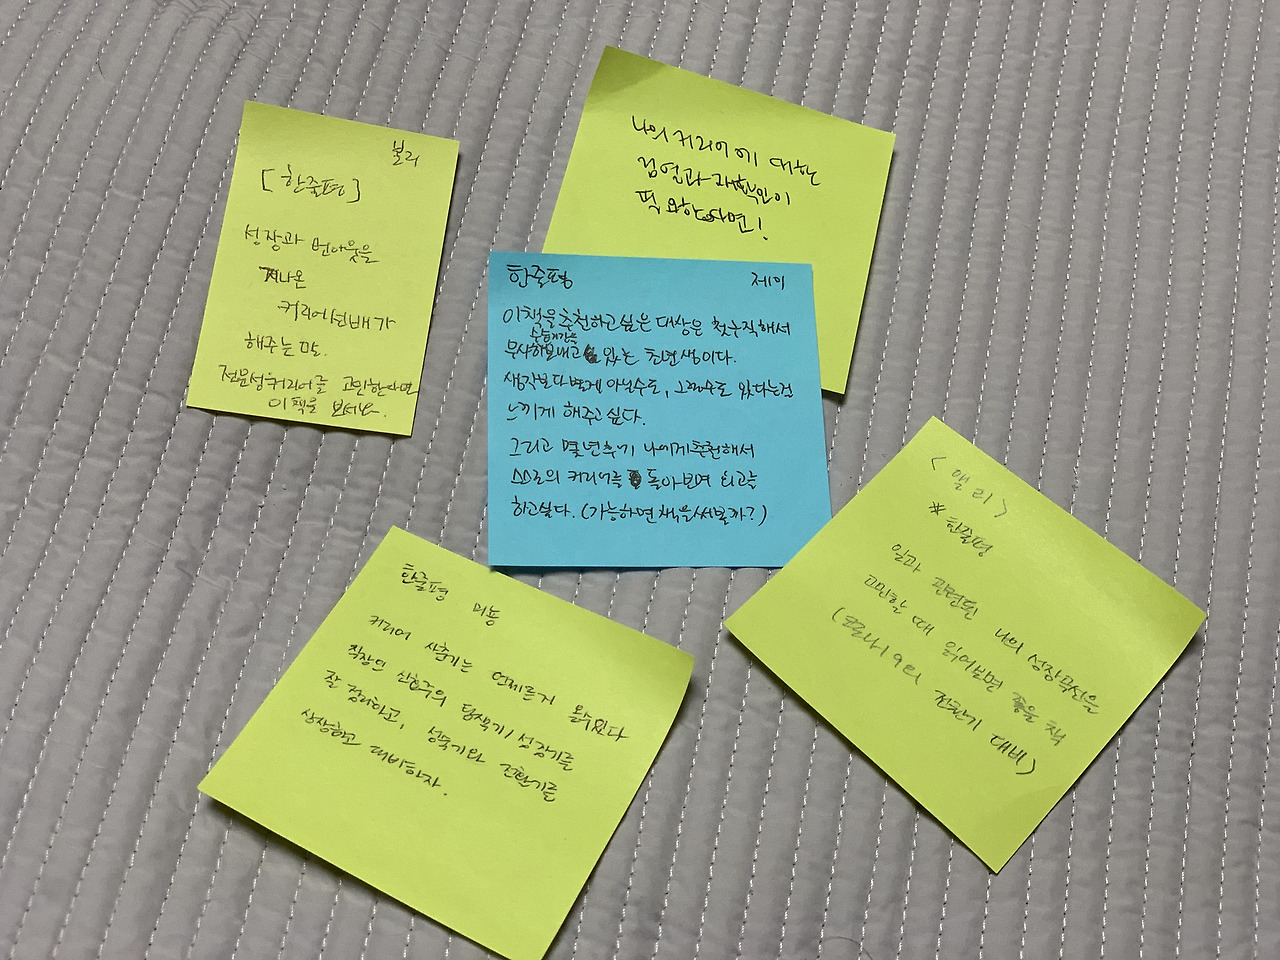 불리
[한줄평]
성장과 번아웃을
지나온
커리어선배가
해주는 말.
전문성·커리어를 고민한다면
이 책을 보세요.
나의 커리어에 대한
점열과 재확인이
필요하다면!
한줄평 제이
이책을 추천하고 싶은 대상은 첫 구직해서
수습기간을
무사히 보내고 있는 초년생이다.
생각보다 별게 아닐수도, 그럴수도 있다는걸
느끼게 해주고 싶다.
그리고 몇년후기 나에게 추천해서
스스로의 커리어를 돌아보며 회고를
하고싶다. (가능하면 책을써볼까?)
<앨리>
#한줄평
일과 관련된 나의 성장곡선을
고민할 때 읽어보면 좋을 책
(코로나19의 전환기 대비)
한줄평 미뇽
커리어 사춘기는 언제든지 올수있다
직장인 신호주의 탐색기/성장기를
잘 견뎌라고, 성숙기와 전환기를
상상하고 대비하자.